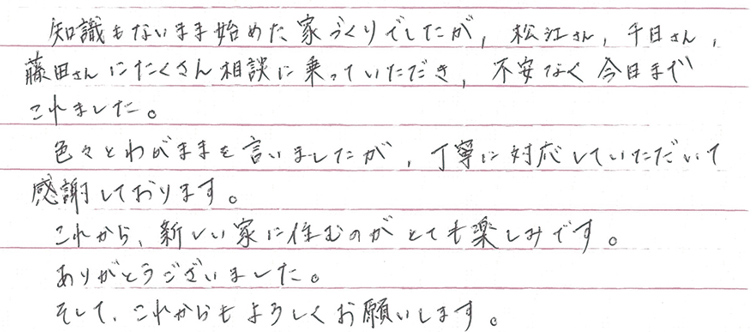 知識もないまま始めた家づくりでしたが，松江さん，千日さん，
藤田さんにたくさん相談に乗っていただき，不安なく今日まで
これました。
色々とわがままを言いましたが，丁寧に対応していただいて
感謝しております。
これから、新しい家に住むのがとても楽しみです。
ありがとうございました。
そして、これからもよろしくお願いします。